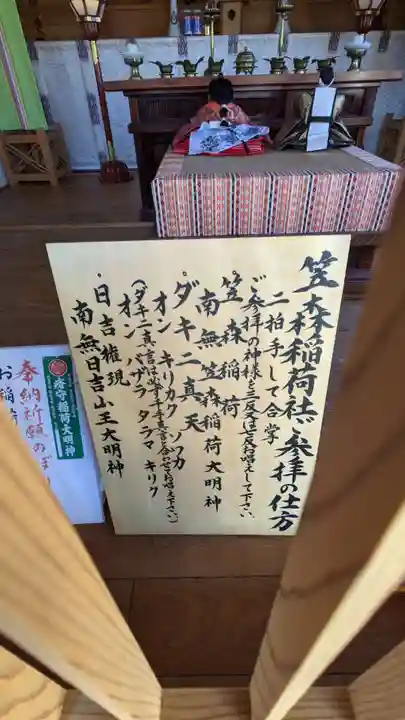 笠森稲荷社ご参拝の仕方
二拍手して合掌
ご参拝の神様を三反又は七反お唱えして下さい。
・笠森稲荷
南無笠森稲荷大明神
・ダキニ真天
オン キリカク ソワカ
(ダキニ真言は必ず
・日吉権現
オン バザラ タラマ キリク
南無日吉山王大明神
守稲荷大明神
奉納祈願のぼり
お稲荷